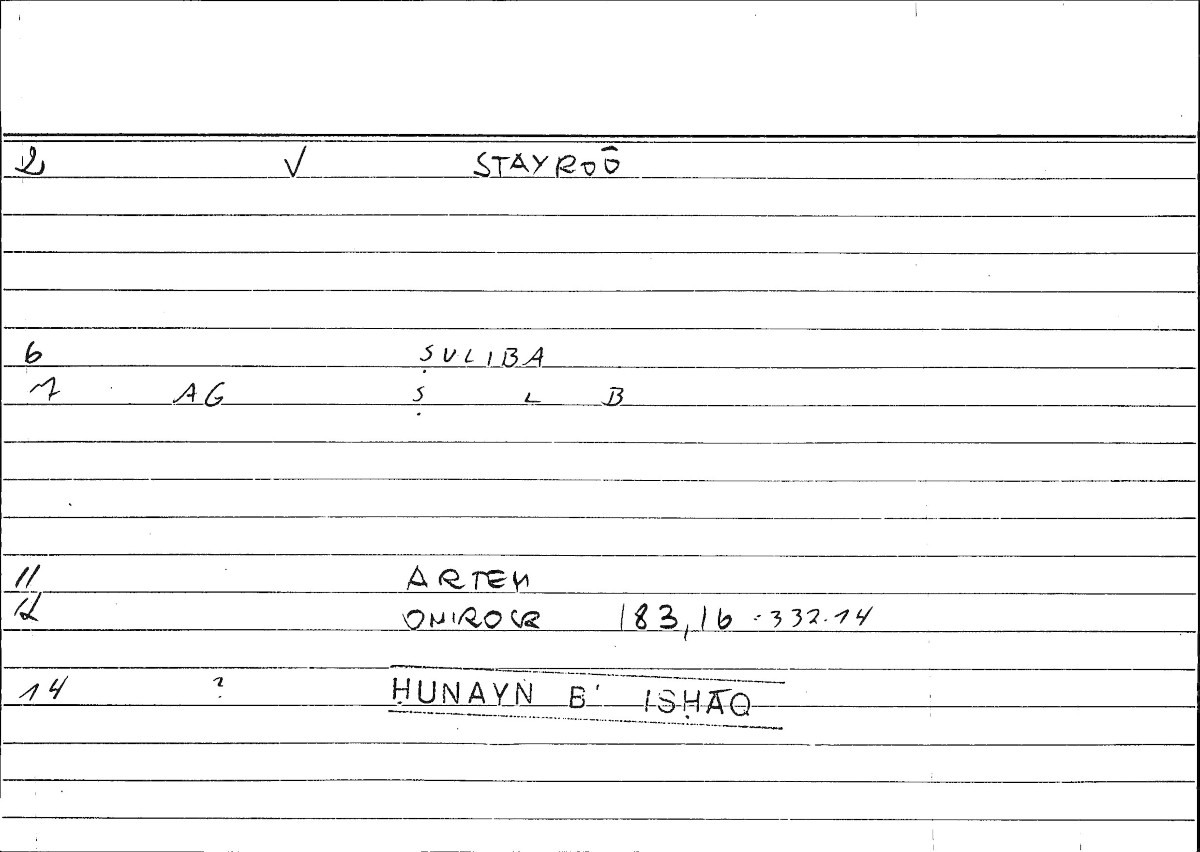 2 V STAYROŌ
6 ṢULIBA
7 AG Ṣ L B
11 ARTEM
12 ONIROCR 183,16 - 332.14
14 ? ḤUNAYN B' ISḤĀQ